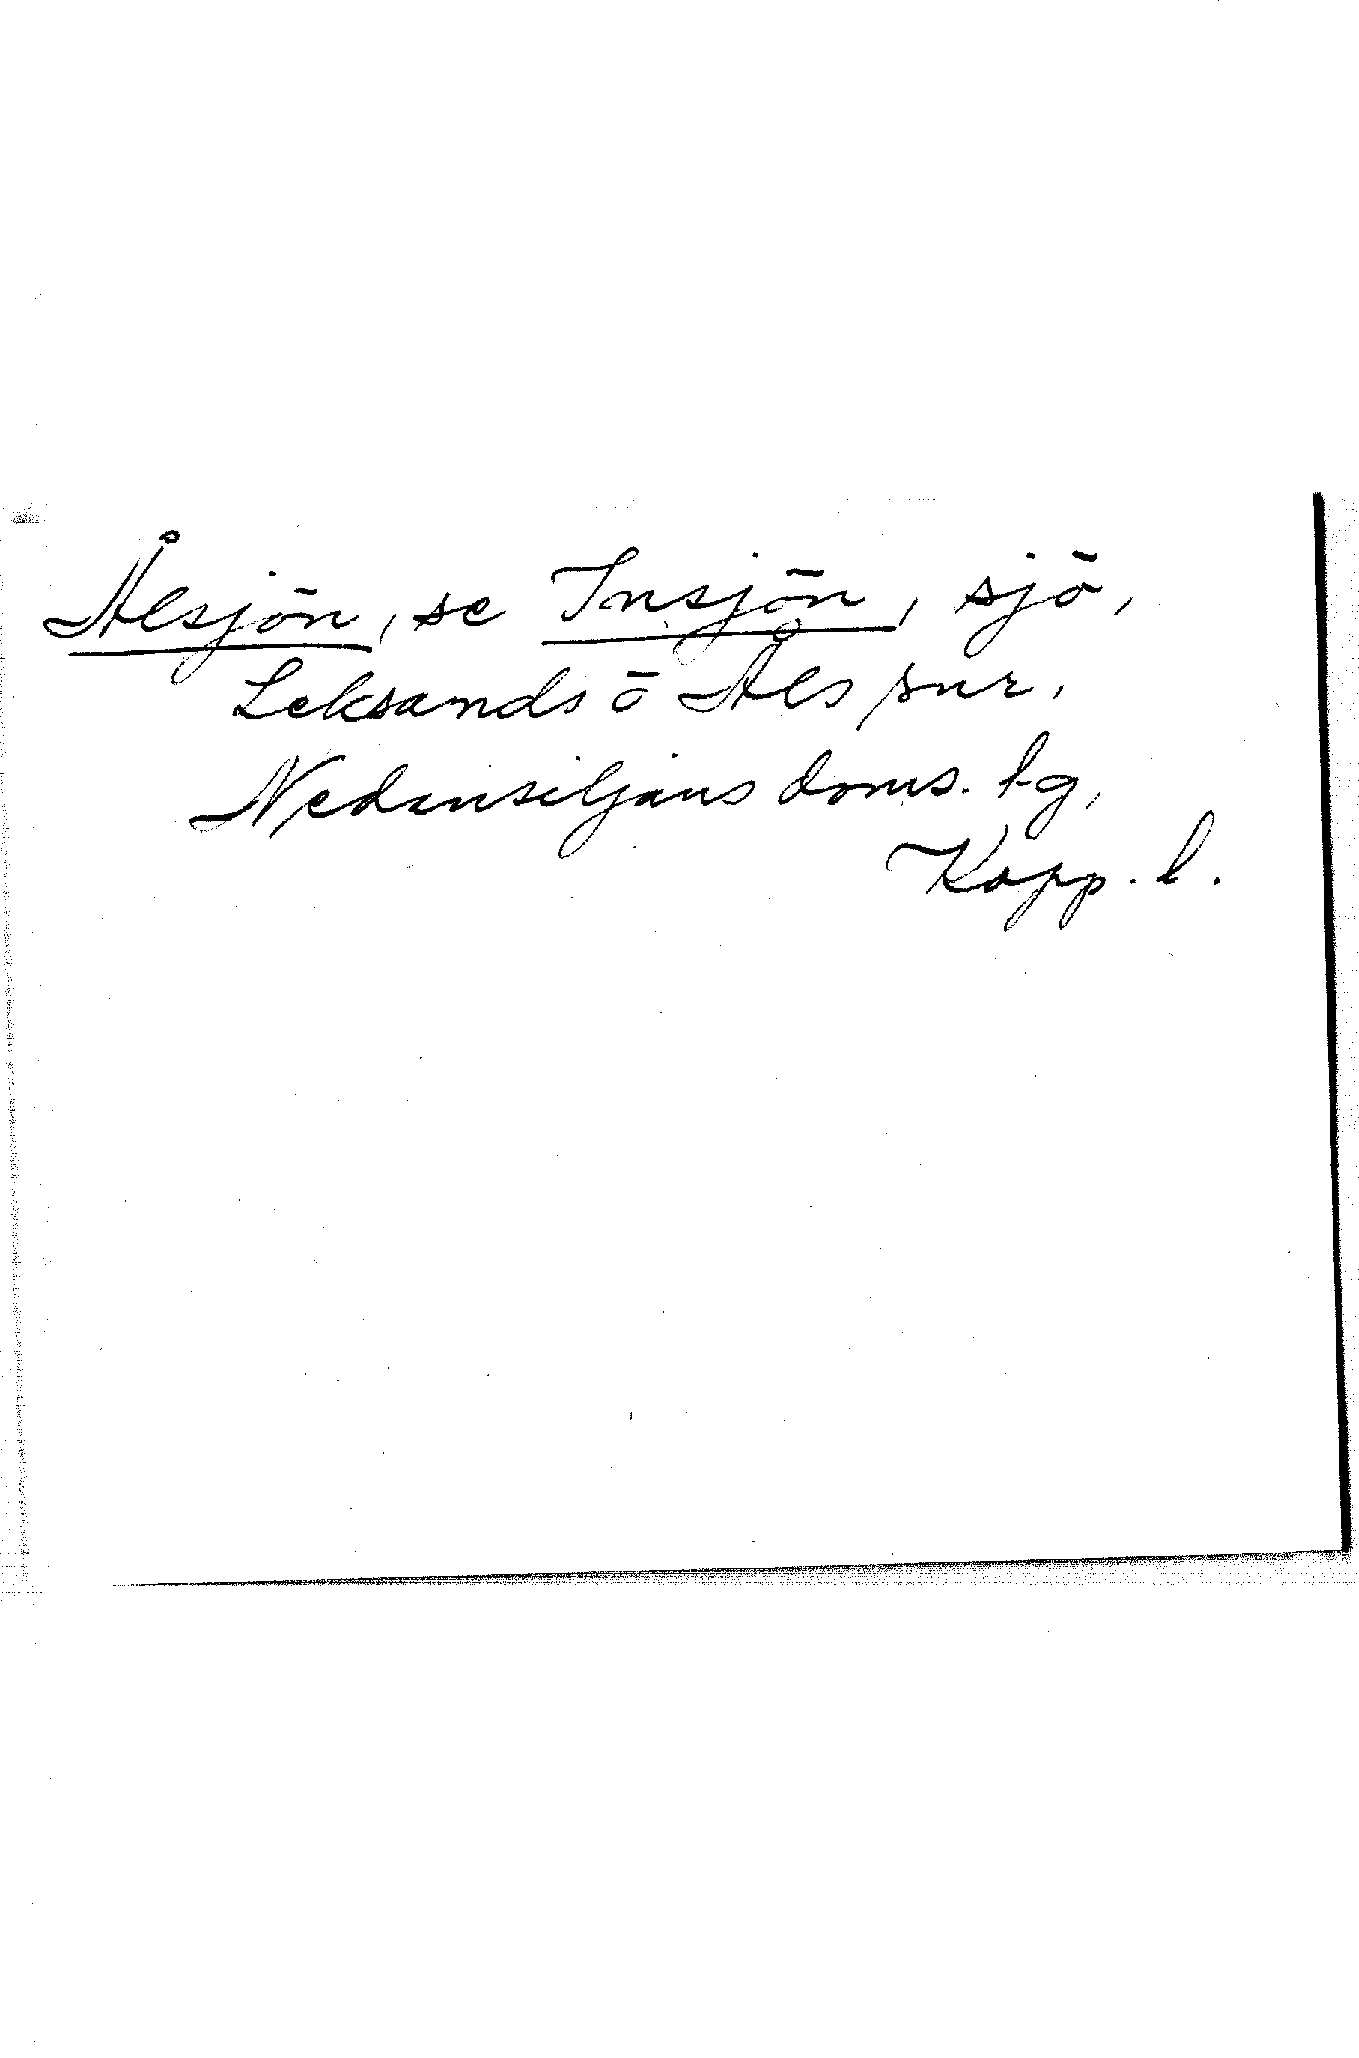 Ålsjön, se Insjön, sjö,
Leksands o Åls snr,
Nedansiljans doms. lg,
Kopp. l.